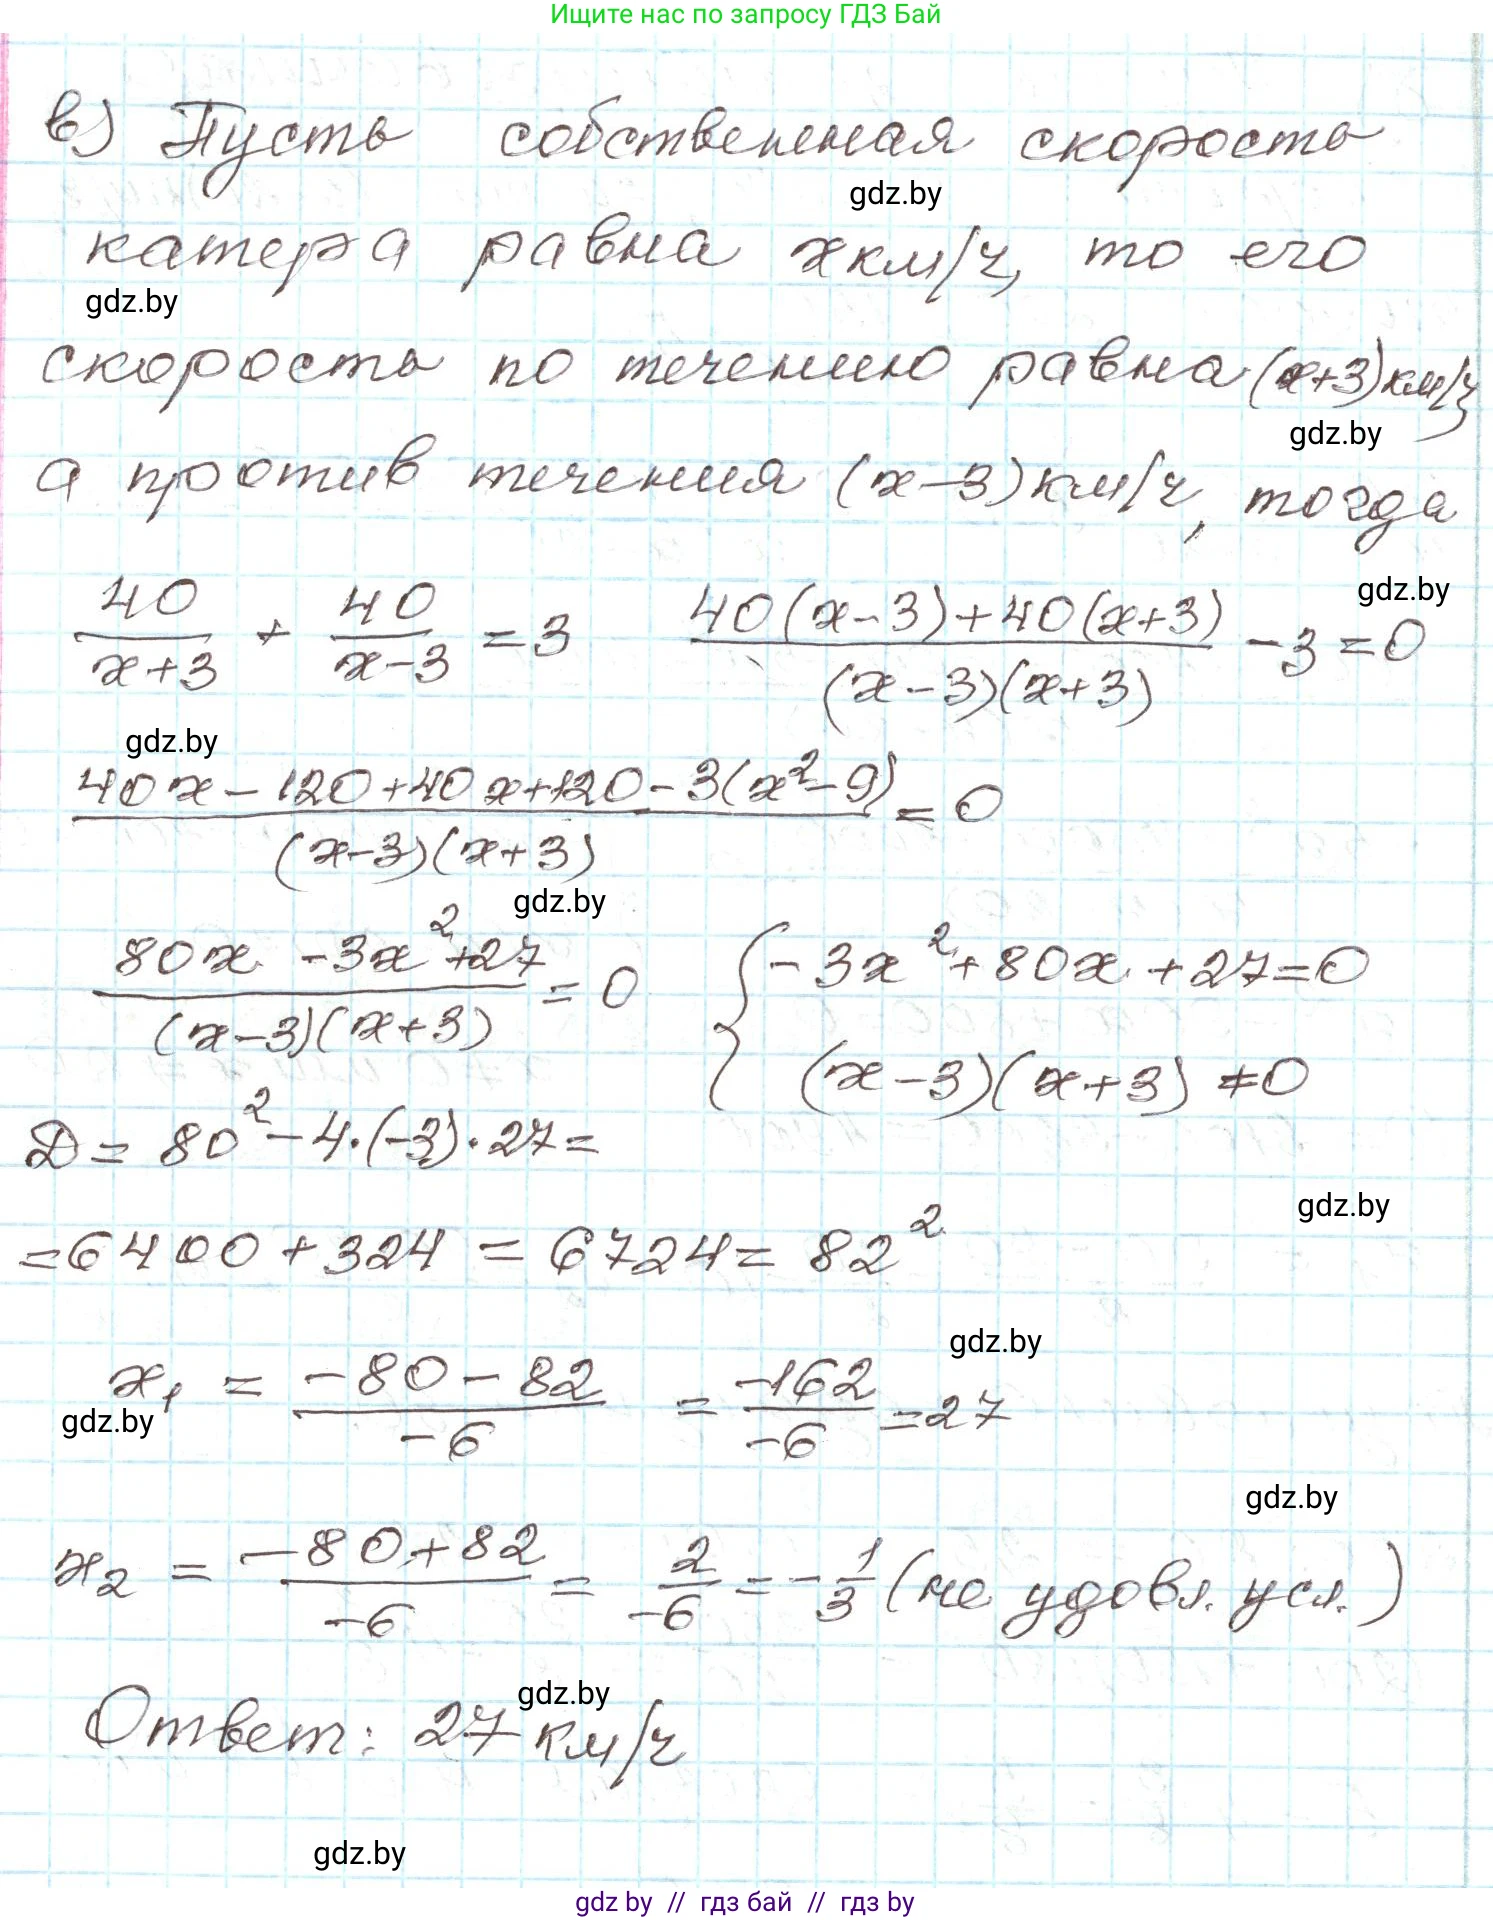 Ищите нас по запросу ГДЗ Бай
в) Пусть собственная скорость
gdz.by
катера равна x км/ч, то его
gdz.by
скорость по течению равна (x+3) км/ч,
gdz.by
а против течения (x-3) км/ч, тогда
gdz.by
40/(x+3) + 40/(x-3) = 3   (40(x-3)+40(x+3))/((x-3)(x+3)) - 3 = 0
gdz.by
(40x-120+40x+120-3(x²-9))/((x-3)(x+3)) = 0
gdz.by
(80x-3x²+27)/((x-3)(x+3)) = 0   { -3x²+80x+27=0
(x-3)(x+3) ≠ 0
D = 80² - 4·(-3)·27 =
gdz.by
= 6400 + 324 = 6724 = 82²
gdz.by
x₁ = (-80-82)/(-6) = (-162)/(-6) = 27
gdz.by
gdz.by
x₂ = (-80+82)/(-6) = 2/(-6) = -1/3 (не удовл. усл.)
gdz.by
Ответ: 27 км/ч
gdz.by
gdz by // гдз бай // гдз by